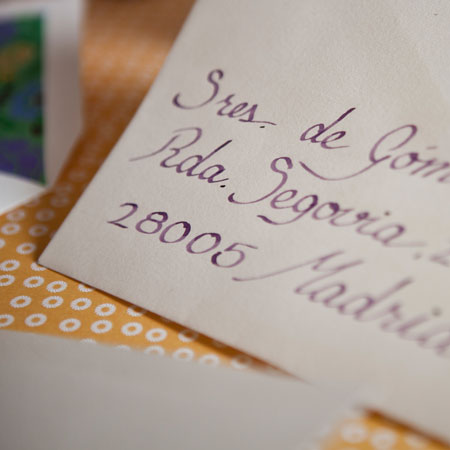 Sres. de Góm
Rda. Segovia,
28005 Madrid